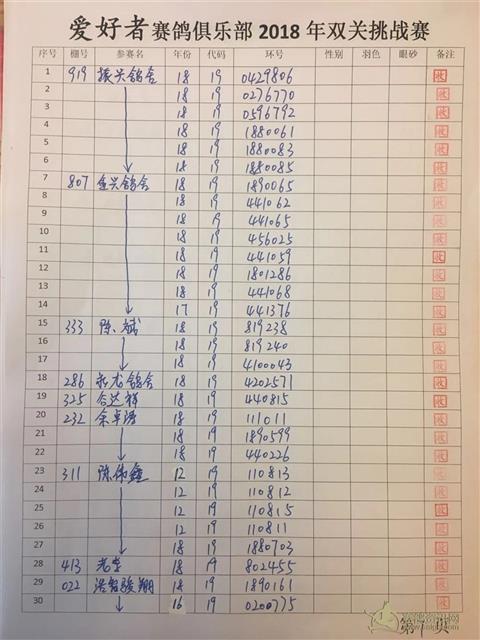 爱好者赛鸽俱乐部2018年双关挑战赛
序号 棚号 参赛名 年份 代码 环号 性别 羽色 眼砂 备注
1 919 振兴鸽舍 18 19 0429806
2 18 19 0276770
3 18 19 0596792
4 18 19 1880061
5 18 19 1880083
6 18 19 1880085
7 807 金兴鸽舍 18 19 1890065
8 18 19 441062
9 18 19 441065
10 18 19 456025
11 18 19 441059
12 18 19 1801286
13 18 19 441068
14 17 19 441376
15 333 陈斌 18 19 819238
16 18 19 819240
17 18 19 4100043
18 286 龙鸽舍 18 19 4202571
19 325 合达祥 18 19 440815
20 232 余卓 18 19 111011
21 18 19 1890599
22 18 19 440226
23 311 陈伟 12 19 110813
24 12 19 110812
25 12 19 110815
26 12 19 110811
27 18 19 1880703
28 413 18 19 802455
29 022 骏翔 18 19 1890161
30 16 19 0200775
第 页